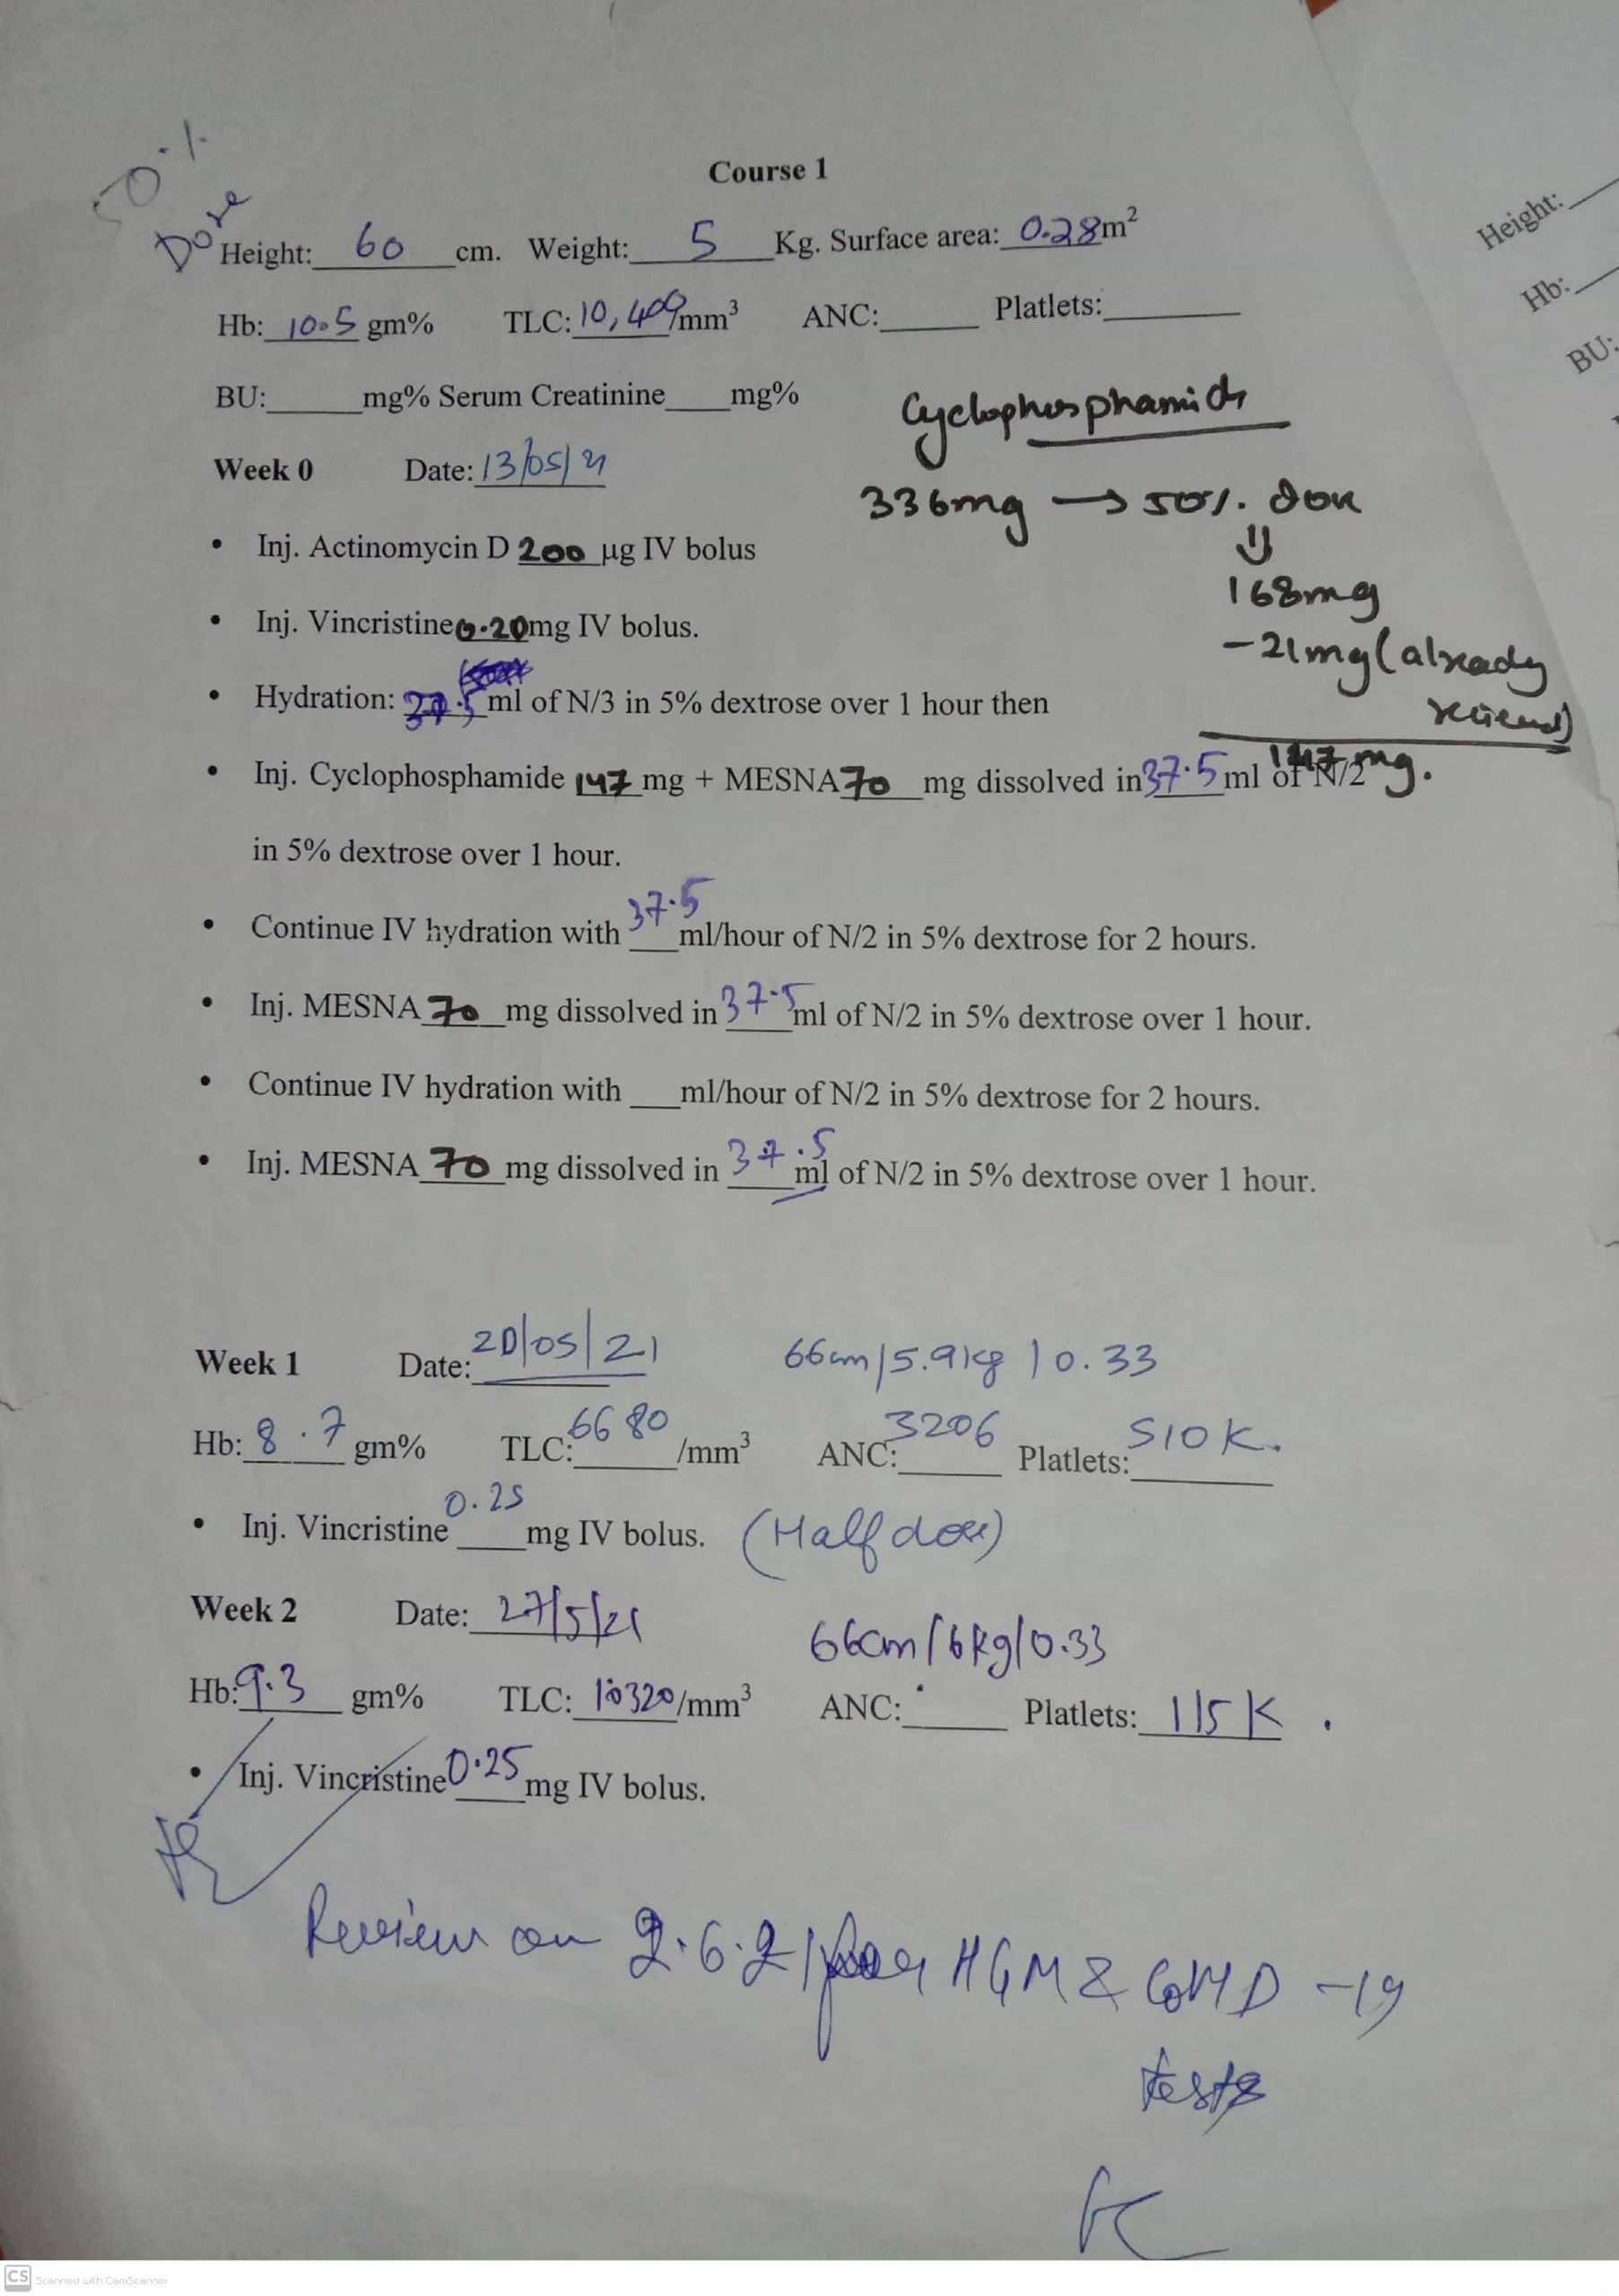 50%
Dose
Course 1
Height: 60 cm. Weight: 5 Kg. Surface area: 0.28m²
Hb: 10.5 gm% TLC: 10,400/mm³ ANC:____ Platlets:____
BU:____mg% Serum Creatinine____mg%
Cyclophosphamide
336mg → 50% dose
⇓
168mg
-21mg (already
received)
147mg.
Week 0 Date: 13/05/21
• Inj. Actinomycin D 200 µg IV bolus
• Inj. Vincristine 0.20mg IV bolus.
• Hydration: 37.5 ml of N/3 in 5% dextrose over 1 hour then
• Inj. Cyclophosphamide 147 mg + MESNA 70 mg dissolved in 37.5 ml of N/2
in 5% dextrose over 1 hour.
• Continue IV hydration with 37.5 ml/hour of N/2 in 5% dextrose for 2 hours.
• Inj. MESNA 70 mg dissolved in 37.5 ml of N/2 in 5% dextrose over 1 hour.
• Continue IV hydration with ___ml/hour of N/2 in 5% dextrose for 2 hours.
• Inj. MESNA 70 mg dissolved in 37.5 ml of N/2 in 5% dextrose over 1 hour.
Week 1 Date: 20/05/21 66cm/5.9kg/0.33
Hb: 8.7 gm% TLC: 6680 /mm³ ANC: 3206 Platlets: 510K.
• Inj. Vincristine 0.25 mg IV bolus. (Half dose)
Week 2 Date: 27/5/21 66cm/6kg/0.33
Hb: 9.3 gm% TLC: 10320/mm³ ANC:____ Platlets: 115K.
• Inj. Vincristine 0.25 mg IV bolus.
Review on 2.6.21 HGM & COVID-19
tests
Height:
Hb:
BU:
CS Scanned with CamScanner